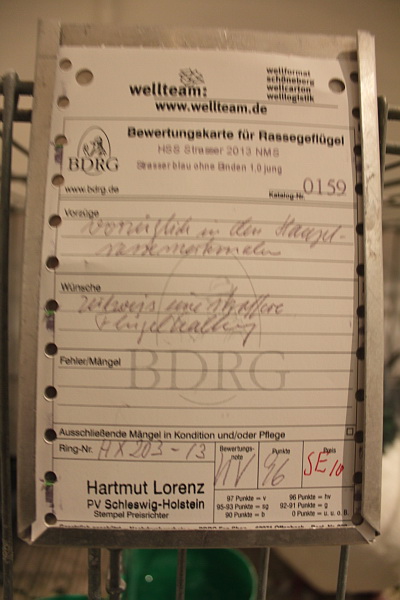 wellteam:
wellformat
schöneberg
wellcarton
welllogistik
www.wellteam.de
BDRG
Bewertungskarte für Rassegeflügel
HSS Strasser 2013 NMS
Strasser blau ohne Binden 1,0 jung
www.bdrg.de
Katalog-Nr. 0159
Vorzüge
vorzüglich in den Haupt-
rassemerkmalen
Wünsche
zeitweis eine straffere
Flügelhaltung
Fehler/Mängel
BDRG
Ausschließende Mängel in Kondition und/oder Pflege
Ring-Nr. HX 203-13
Bewertungs-
note
Punkte 96
Preis
SE 10
Hartmut Lorenz
PV Schleswig-Holstein
Stempel Preisrichter
97 Punkte = v
96 Punkte = hv
95-93 Punkte = sg
92-91 Punkte = g
90 Punkte = b
0 Punkte = u. o. B.